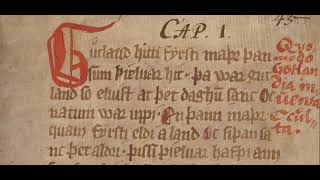 CAP. I.
Gutland hitti fyrsti maþr þan
sum þieluar hit. þa war gut
land so eluist at þet daghum sanc oc
natum war uppi. En þann maþr
quam fyrsti eldi a land oc siþan sa
nc þet aldri. þissi þieluar hafþi ann
Quo
modo
Gotlan
dia in